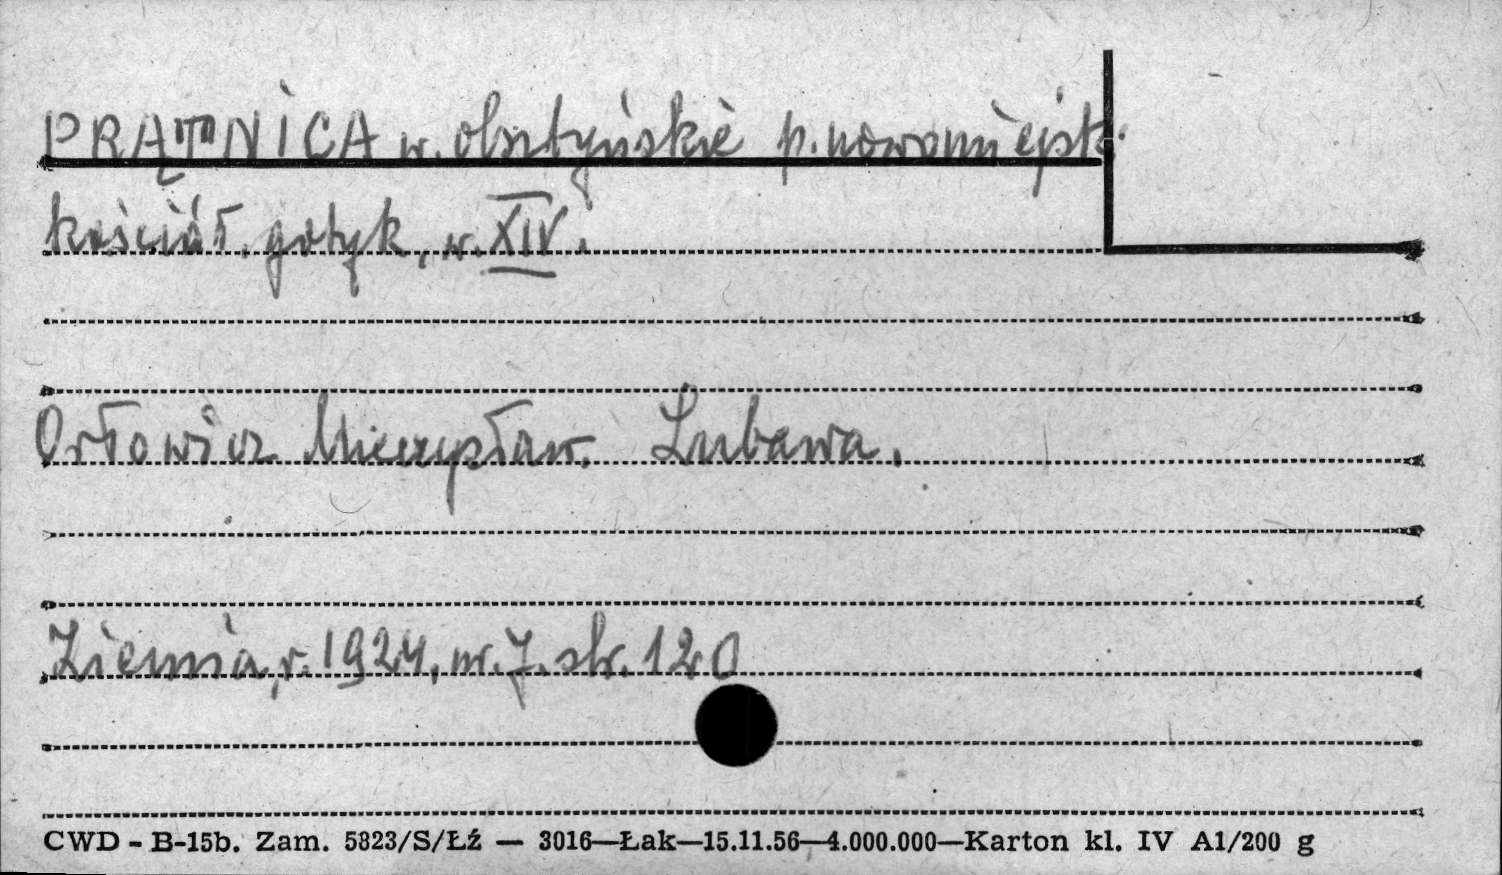 PRĄTNICA w. olsztyńskie p. nowomiejsk.
kościół gotyk, w. XIV.
Orłowicz Mieczysław. Lubawa.
Ziemia, r. 1924, nr. 7. str. 120
CWD - B-15b. Zam. 5823/S/Łź — 3016—Łak—15.11.56—4.000.000—Karton kl. IV A1/200 g